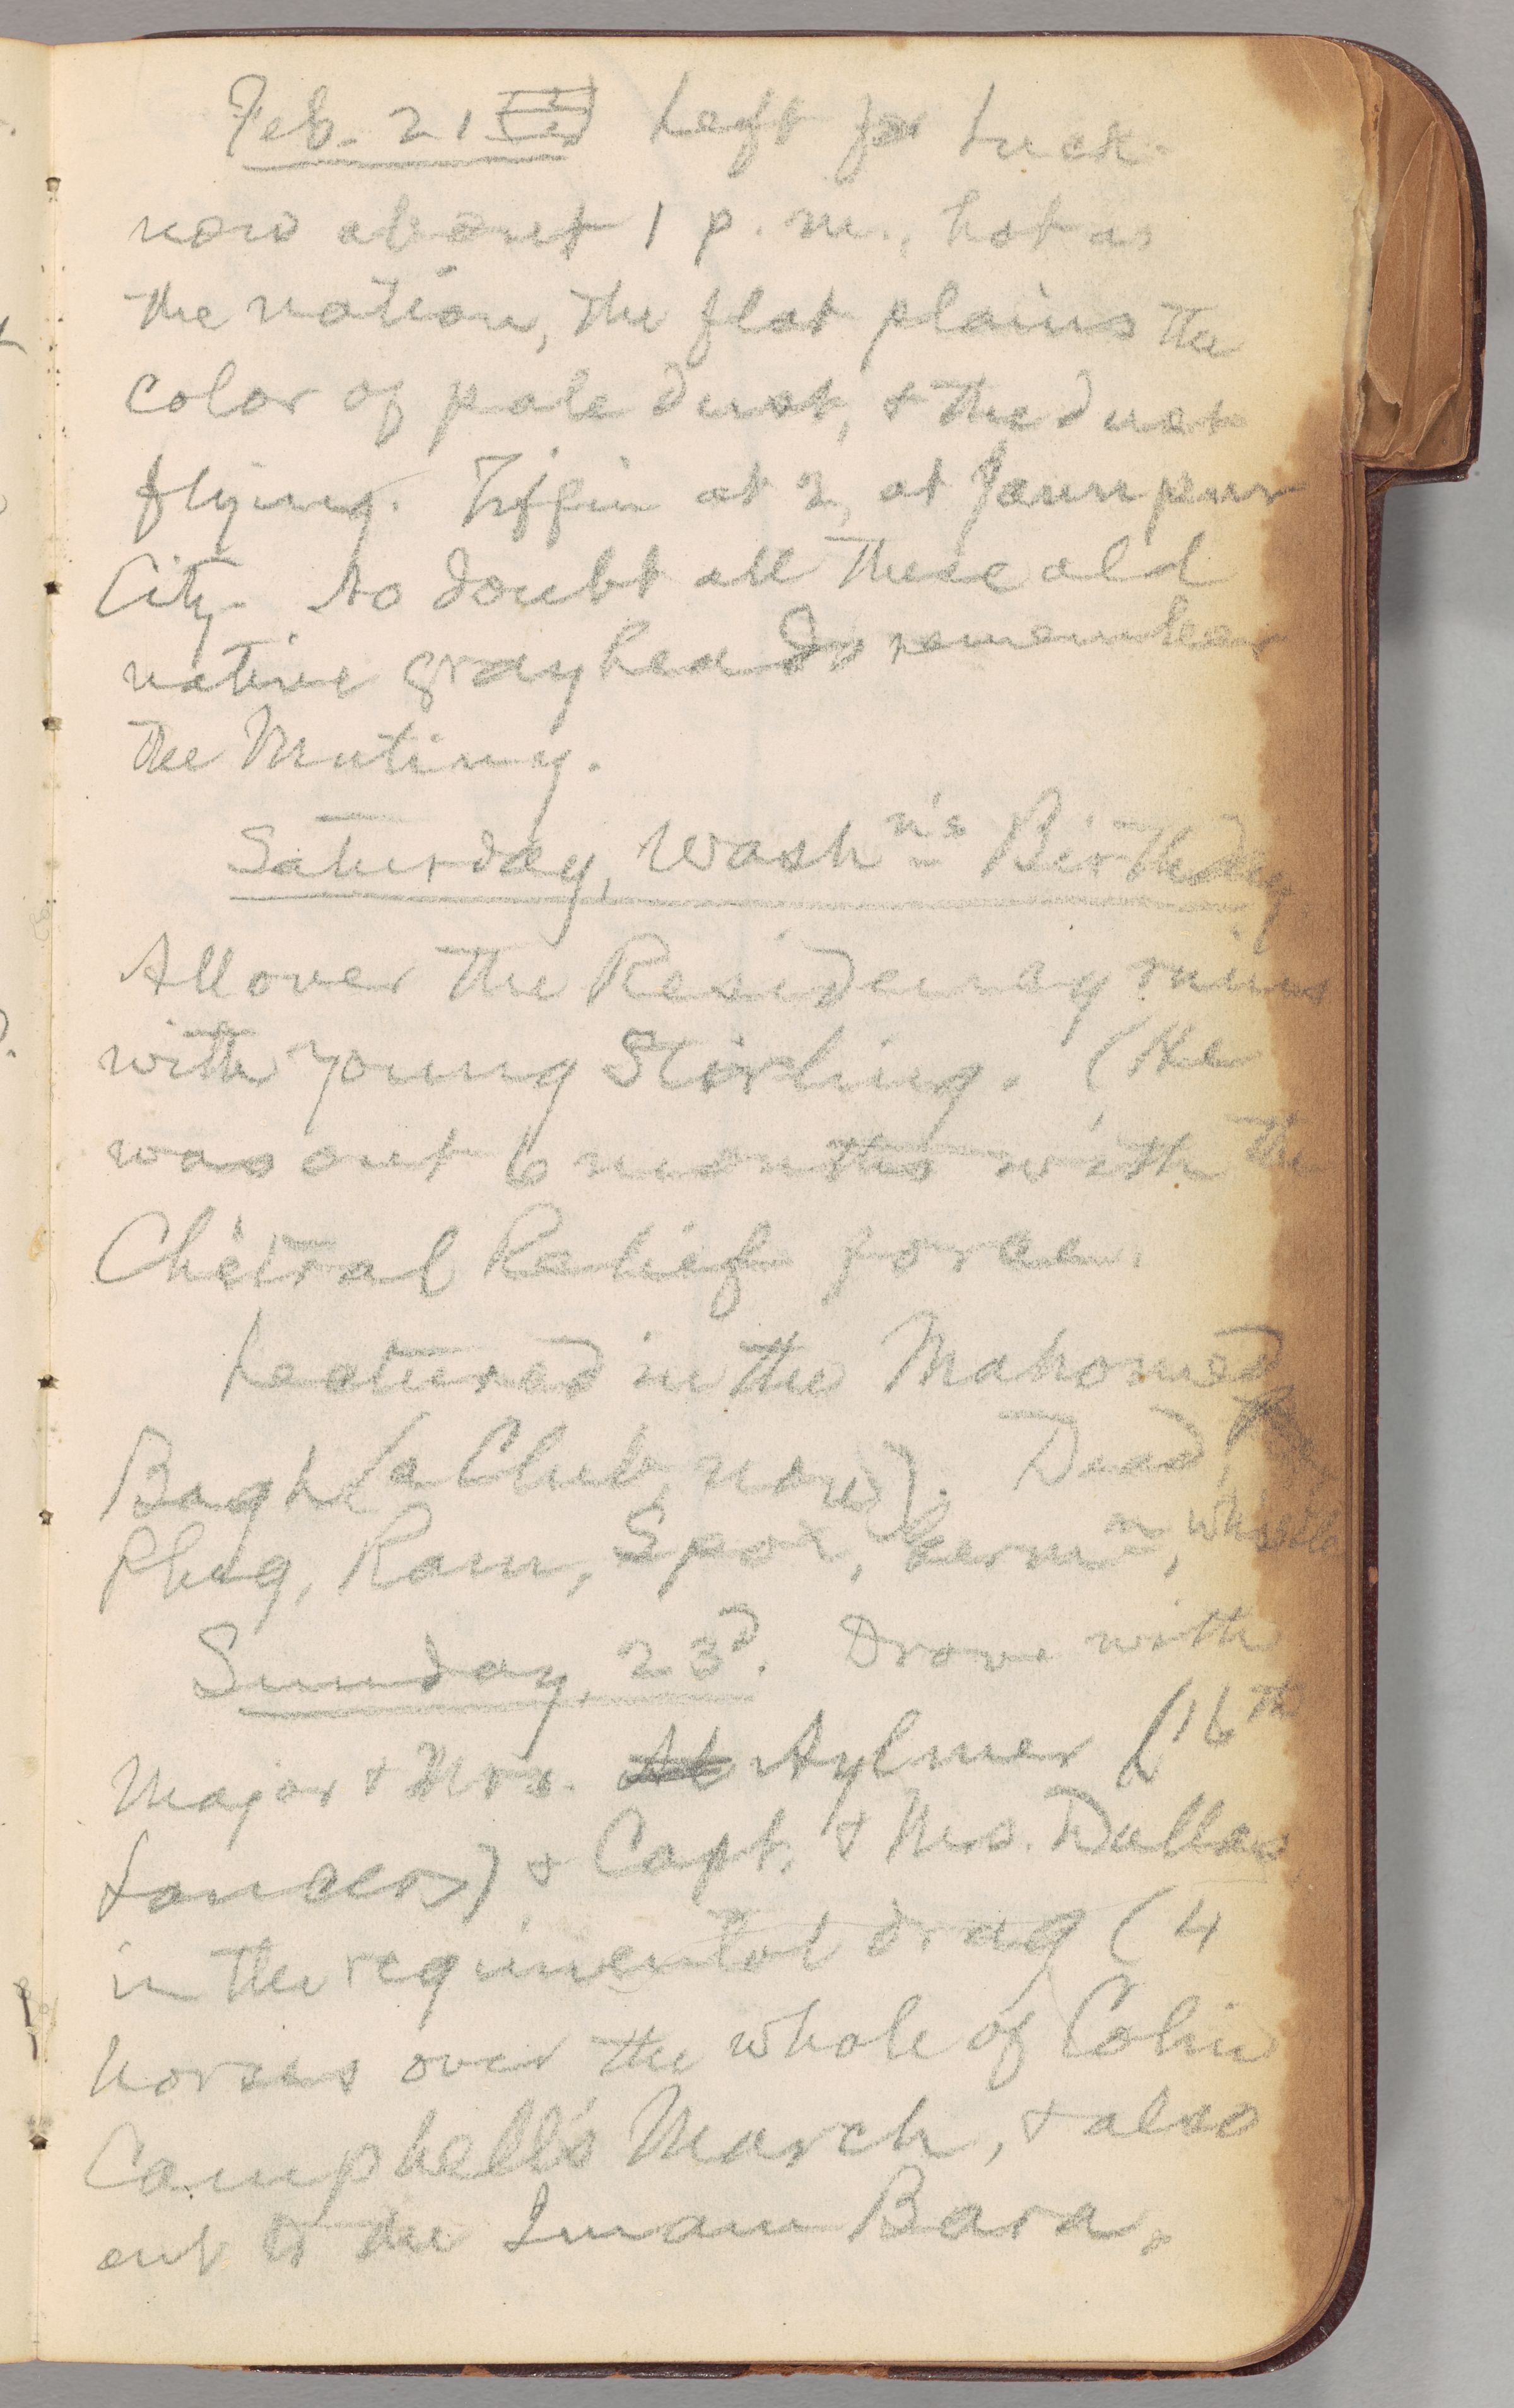 Feb. 21 Left for Luck-
now about 1 p. m., hot as
the nation, the flat plains the
color of pale dust, & the dust
flying. Tiffin at 2, at Jaunpur
City. No doubt all these old
native grayheads remember
the Mutiny.
Saturday, Wash<sup>n's</sup> Birthday
All over the Residency ruins
with young Stirling. (He
was out 6 months with the
Chitral Relief force.
Lectured in the Mahomed
Bagh (a Club, now). Dead,
Plug, Ram, Spox, Germ<sup>n</sup>, Whistle
Sunday, 23<sup>d</sup>. Drove with
Major & Mrs. Aylmer (16<sup>th</sup>
Lancers) & Capt. & Mrs. Dallas
in the regimental drag (4
horses over the whole of Colin
Campbell's March, & also
out to the Imam Bara.